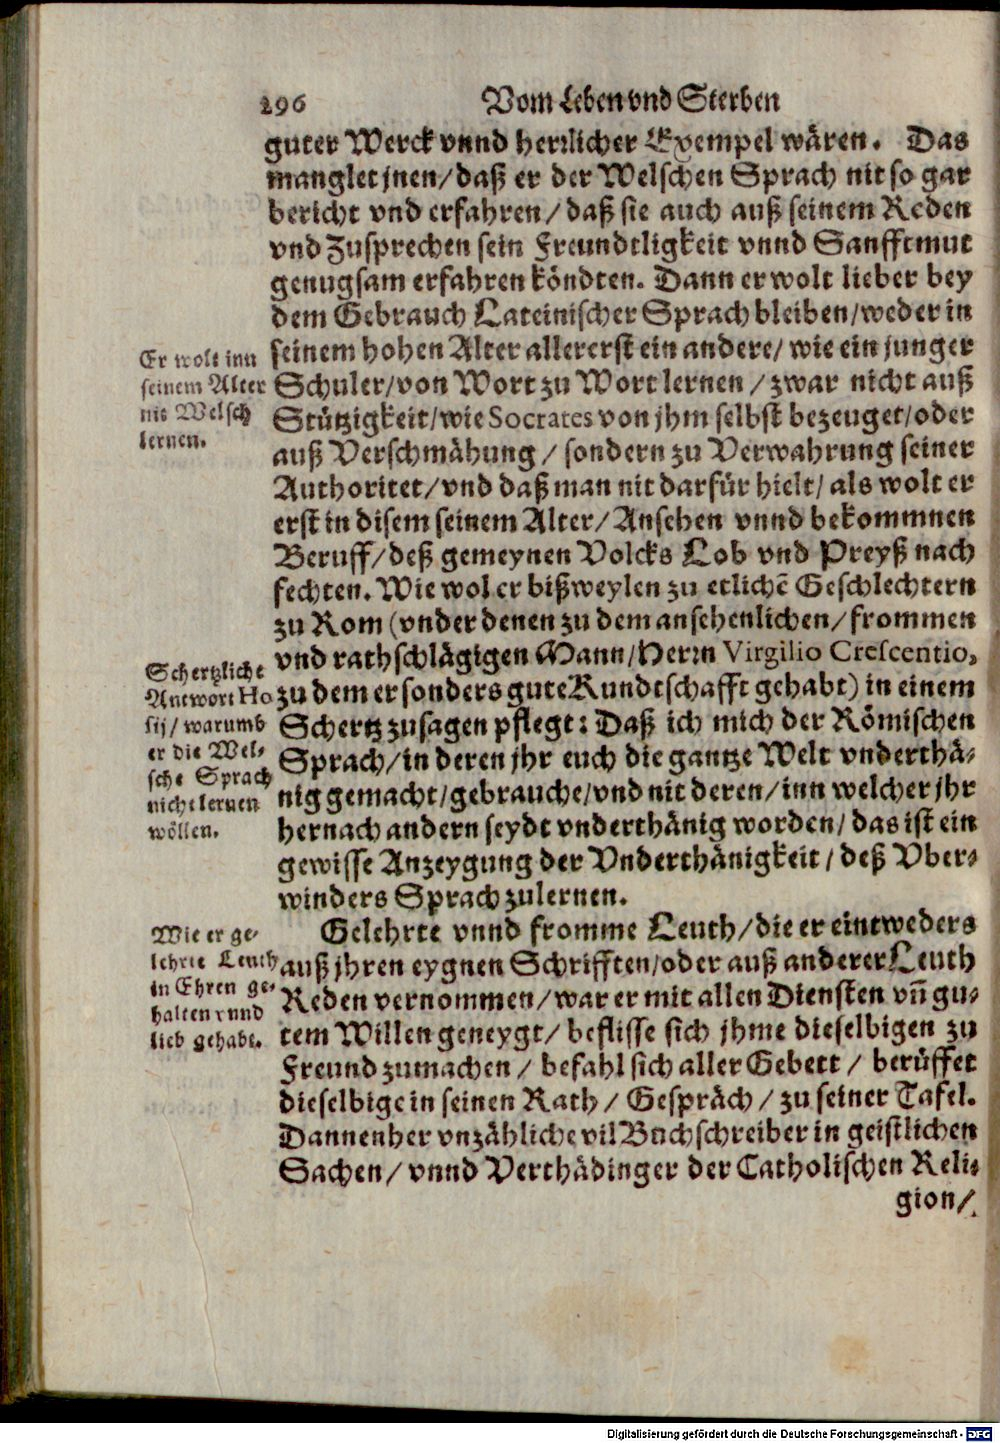 296 Vom Leben vnd Sterben
guter Werck vnnd herꝛlicher Exempel wåren. Das
manglet jnen/ daß er der Welschen Sprach nit so gar
bericht vnd erfahren/ daß sie auch auß seinem Reden
vnd Zusprechen sein Freundtligkeit vnnd Sanfftmut
genugsam erfahren kôndten. Dann er wolt lieber bey
dem Gebrauch Lateinischer Sprach bleiben/ weder in
seinem hohen Alter allererst ein andere/ wie ein junger
Schuler/ von Wort zu Wort lernen/ zwar nicht auß
Stützigkeit/ wie Socrates von jhm selbst bezeuget/ oder
auß Verschmåhung/ sondern zu Verwahrung seiner
Authoritet/ vnd daß man nit darfür hielt/ als wolt er
erst in disem seinem Alter/ Ansehen vnnd bekommnen
Beruff/ deß gemeynen Volcks Lob vnd Preyß nach
fechten. Wie wol er bißweylen zu etlichẽ Geschlechtern
zu Rom (vnder denen zu dem ansehenlichen/ frommen
vnd rathschlågigen Mann/ Herꝛn Virgilio Crescentio,
zu dem er sonders gute Kundtschafft gehabt) in einem
Schertz zusagen pflegt: Daß ich mich der Rômischen
Sprach/ in deren jhr euch die gantze Welt vnderthå-
nig gemacht/ gebrauche/ vnd nit deren/ inn welcher jhr
hernach andern seydt vnderthånig worden/ das ist ein
gewisse Anzeygung der Vnderthånigkeit/ deß Vber-
winders Sprach zulernen.
Gelehrte vnnd fromme Leuth/ die er eintweders
auß jhren eygnen Schrifften/ oder auß anderer Leuth
Reden vernommen/ war er mit allen Diensten vñ gu-
tem Willen geneygt/ beflisse sich jhme dieselbigen zu
Freund zumachen/ befahl sich aller Gebett/ berüffet
dieselbige in seinen Rath/ Gespråch/ zu seiner Tafel.
Dannenher vnzåhliche vil Buchschreiber in geistlichen
Sachen/ vnnd Verthådinger der Catholischen Reli-
gion/
Er wolt inn
seinem Alter
nit Welsch
lernen.
Schertzliche
Antwort Ho
sij/ warumb
er die Wel-
sche Sprach
nicht lernen
wôllen.
Wie er ge-
lehrte Leuth
in Ehren ge-
halten vnnd
lieb gehabt.
Digitalisierung gefördert durch die Deutsche Forschungsgemeinschaft - DFG